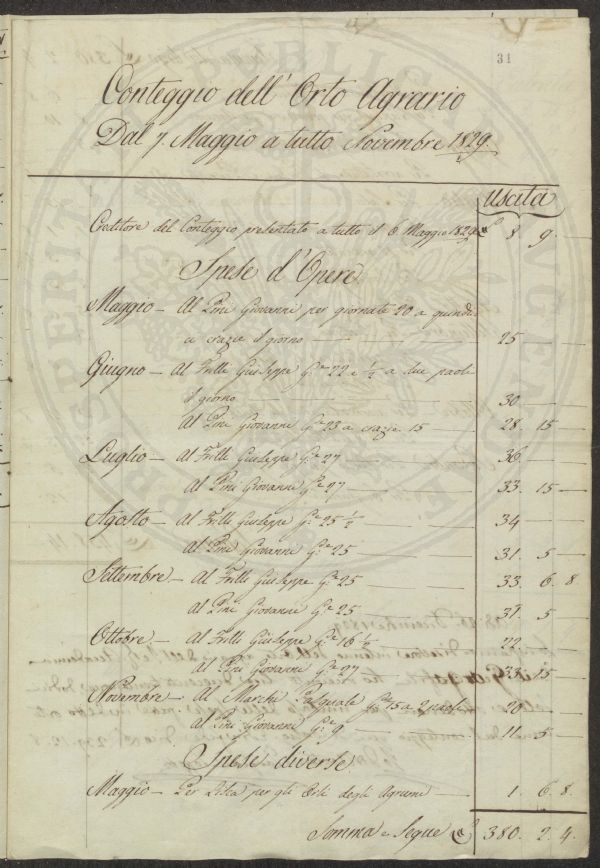 31
Conteggio dell'Orto Agrario
Dal 7. Maggio a tutto Novembre 1829.
Uscita
Creditore del Conteggio presentato a tutto il 6 Maggio 1829 £ 8 9 —
Spese d'Opere
Maggio — Al Pini Giovanni per giornate 20 a quindi
ci crazie il giorno — 25 — —
Giugno — Al Frilli Giuseppe G.e 22 e ½ a due paoli
il giorno — 30 — —
Al Pini Giovanni G.e 23 a crazie 15 — 28. 15 —
Luglio — Al Frilli Giuseppe G.e 27 — 36.
Al Pini Giovanni G.e 27 — 33. 15 —
Agosto — Al Frilli Giuseppe G.e 25 ½ — 34 —
Al Pini Giovanni G.e 25 — 31. 5 —
Settembre — Al Frilli Giuseppe G.e 25 — 33. 6. 8.
Al Pini Giovanni G.e 25 — 31 5
Ottobre — Al Frilli Giuseppe G.e 16 ½ — 22 —
Al Pini Giovanni G.e 27 — 33 15 —
Novembre — Al Marchi Pasquale G.e 15 a 2 paoli 20 —
Al Pini Giovanni G.e 9 — 11 5 —
Spese diverse
Maggio — Per per gli Orli degli Agrumi — 1. 6. 8.
Somma e Segue £ 380. 2. 4.